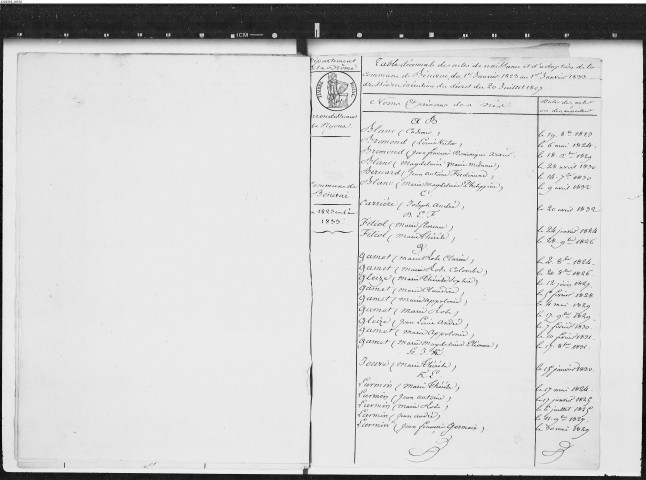 Département
de la Drôme
arrondissement
de Nyons
Commune de
Bénivai
de 1823 en
1833
Table décennale des actes de naissance et d'adoption de la
Commune de Bénivai, du 1er Janvier 1823 au 1er Janvier 1833
dressée en exécution du décret du 20 Juillet 1807
Noms et prénoms des nés
Dates des actes
A B
Blanc (      ) le 19 8bre 1823
Bremond (Louis Victor) le 6 mai 1824
Bremond (Jean François Dominique      ) le 18 1829
Blanc (Magdeleine Marie      ) le 28 avril 1830
Bernard (Jean Antoine Ferdinand) le 14 7bre 1830
Blanc (Marie Magdeleine Philippine) le 9 avril 1832
C
Carrière (Joseph André) le 20 avril 1832
D. E. F.
Féliol (Marie      ) le 24 janvier 1824
Féliol (Marie Thérèse) le 28 9bre 1826
G
Gamet (Marie Rose Claire) le 2 8bre 1824
Gamet (Marie Rose Colombe) le 20 8bre 1826
Gleize (Marie Thérèse Sophie) le 12 juin 1827
Gamet (Marie Claudine) le février 1828
Gamet (Marie Appolonie) le 4 mai 1829
Gamet (Marie Rose) le 17 9bre 1829
Gleize (Jean Louis André) le 7 février 1830
Gamet (Marie Appolonie) le 10 février 1831
Gamet (Marie Magdeleine      ) le 19 8bre 1831
H. J. K.
Jouve (Marie Thérèse) le 15 janvier 1830
K. L.
Lurmin (Marie Thérèse) le 17 mai 1824
Lurmin (Jean Antoine) le 17 janvier 1825
Lurmin (Marie Rose) le 6 juillet 1825
Lurmin (Jean André) le 21 9bre 1827
Lurmin (Jean François Germain) le mai 1829